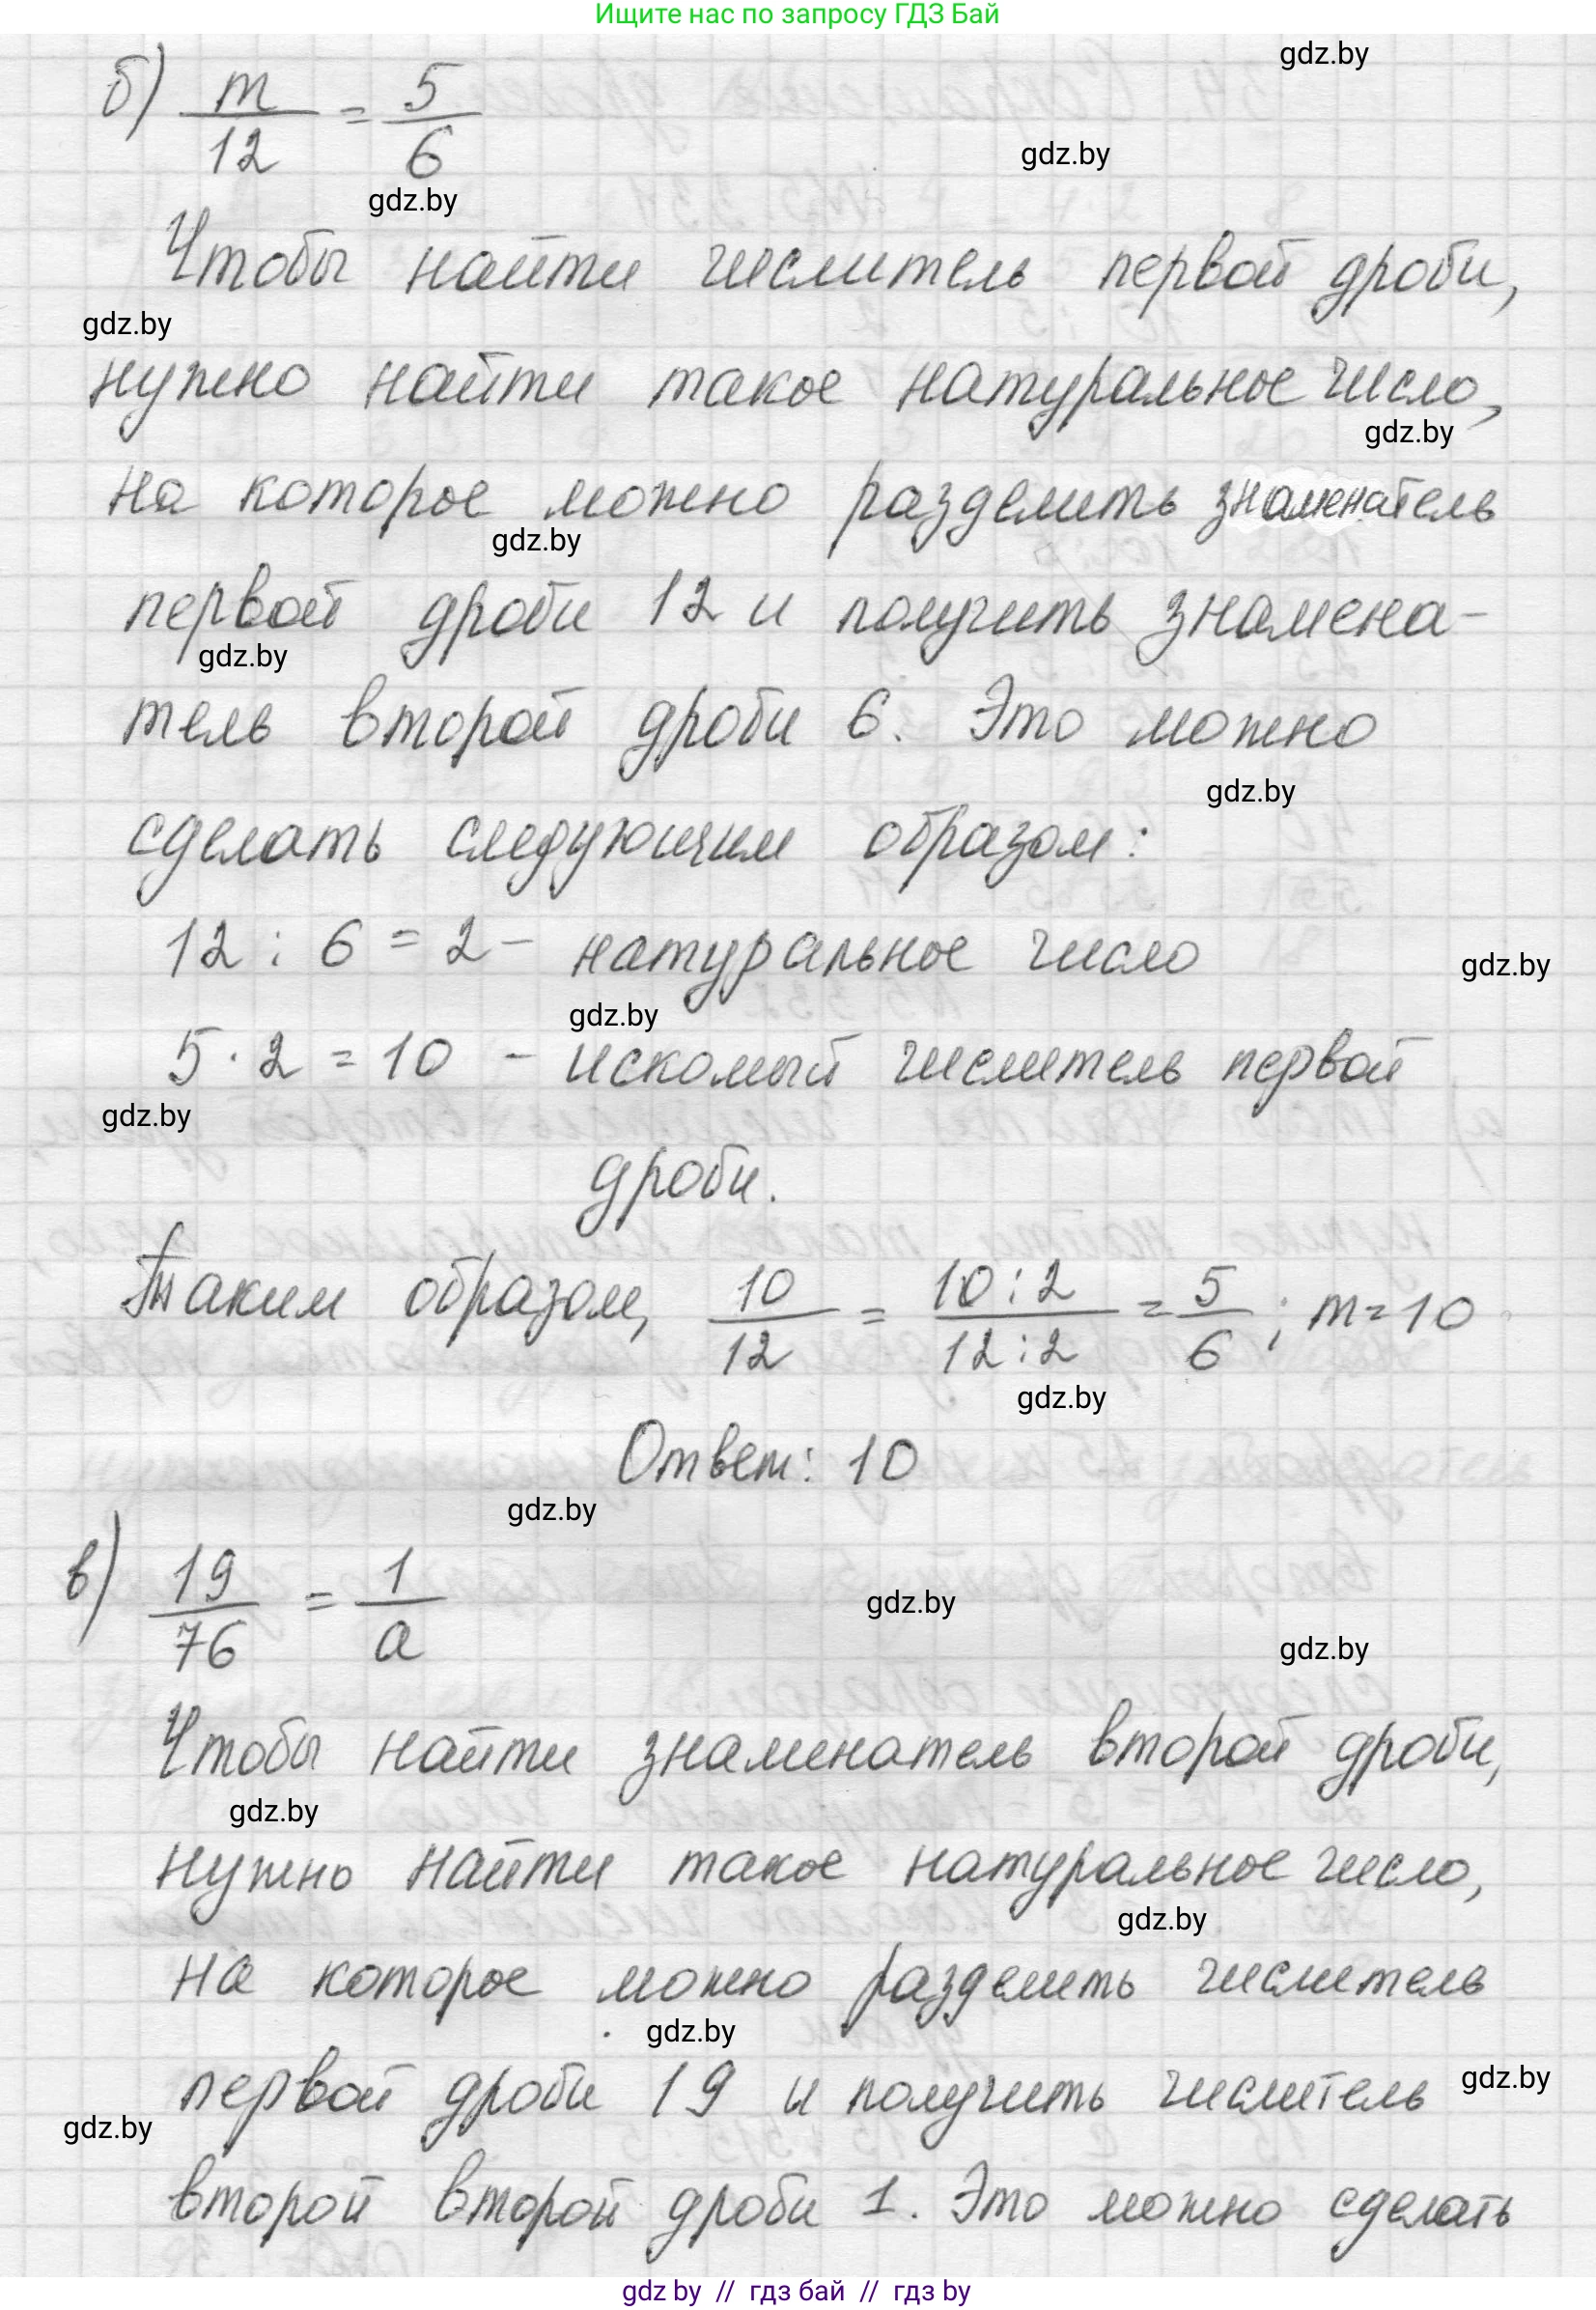 Ищите нас по запросу ГДЗ Бай
gdz.by
б) m/12 = 5/6
gdz.by
gdz.by
Чтобы найти числитель первой дроби,
gdz.by
нужно найти такое натуральное число,
gdz.by
на которое можно разделить знаменатель
gdz.by
первой дроби 12 и получить знамена-
gdz.by
тель второй дроби 6. Это можно
gdz.by
сделать следующим образом:
12 : 6 = 2 - натуральное число
gdz.by
gdz.by
5 · 2 = 10 - искомый числитель первой
gdz.by
дроби.
Таким образом, 10/12 = 10:2/12:2 = 5/6; m = 10
gdz.by
Ответ: 10
gdz.by
в) 19/76 = 1/a
gdz.by
gdz.by
Чтобы найти знаменатель второй дроби,
gdz.by
нужно найти такое натуральное число,
gdz.by
на которое можно разделить числитель
gdz.by
первой дроби 19 и получить числитель
gdz.by
gdz.by
второй второй дроби 1. Это можно сделать
gdz by // гдз бай // гдз by